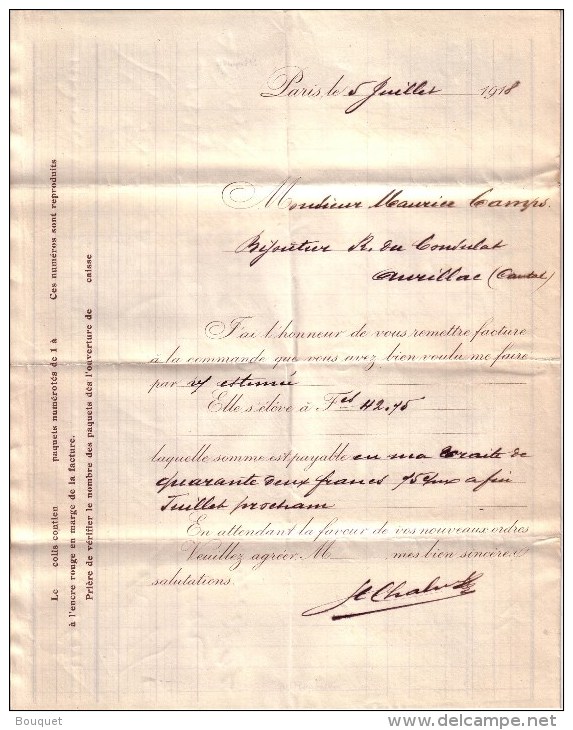 Paris, le 5 Juillet 1918
Monsieur Maurice Camps.
Bijoutier R. du Consulat
Aurillac (Cantal)
J'ai l'honneur de vous remettre facture
à la commande que vous avez bien voulu me faire
par v/ estimée
Elle s'élève à Fcs 42.75
laquelle somme est payable en ma traite de
quarante deux francs 75 à fin
Juillet prochain
En attendant la faveur de vos nouveaux ordres
Veuillez agréer, M mes bien sincères
salutations.
Le colis contien paquets numérotés de 1 à Ces numéros sont reproduits
à l'encre rouge en marge de la facture.
Prière de vérifier le nombre des paquets dès l'ouverture de caisse
Bouquet
delcampe.net